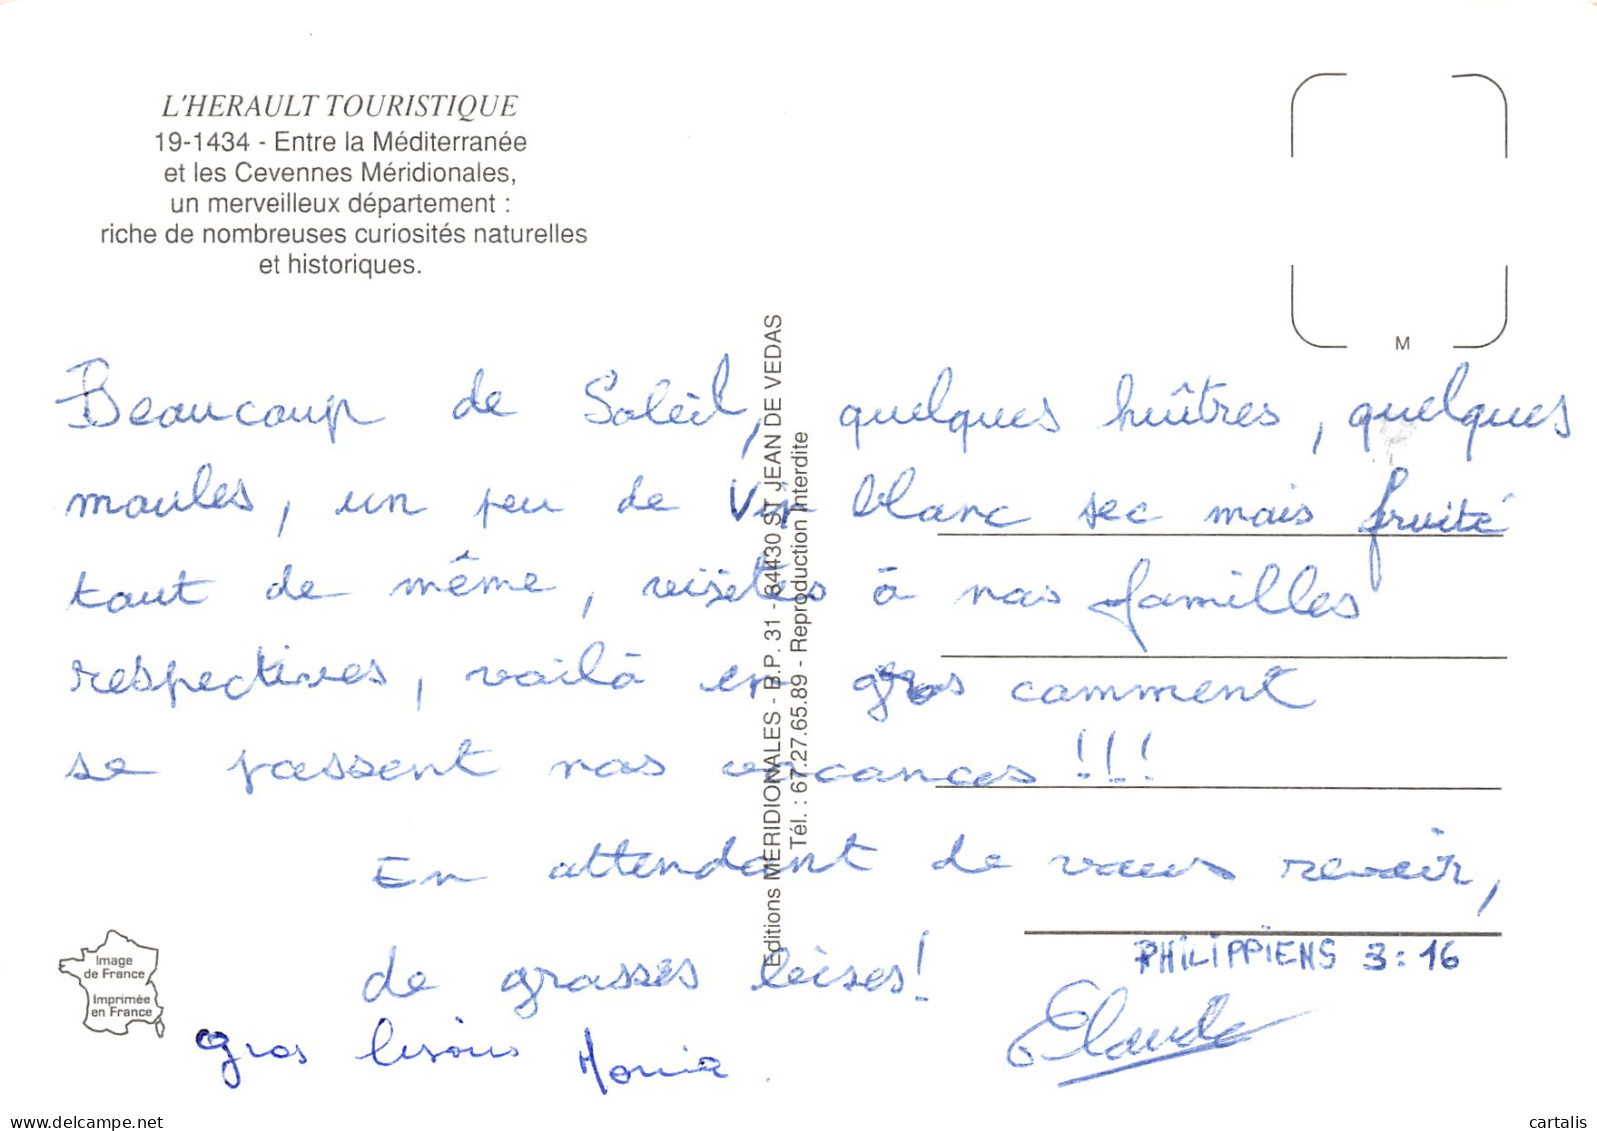 L'HERAULT TOURISTIQUE
19-1434 - Entre la Méditerranée
et les Cevennes Méridionales,
un merveilleux département :
riche de nombreuses curiosités naturelles
et historiques.
M
Beaucoup de Soleil, quelques huîtres, quelques
moules, un peu de Vin blanc sec mais fruité
tout de même, visites à nos familles
respectives, voilà en gros comment
se passent nos vacances !!!
En attendant de vous revoir,
de grosses bises!
PHILIPPIENS 3:16
Gros bisous Monia.
Claude
Editions MERIDIONALES - B.P. 31 - 34430 ST JEAN DE VEDAS
Tél. : 67.27.65.89 - Reproduction Interdite
Image
de France
Imprimée
en France
delcampe.net
cartalis